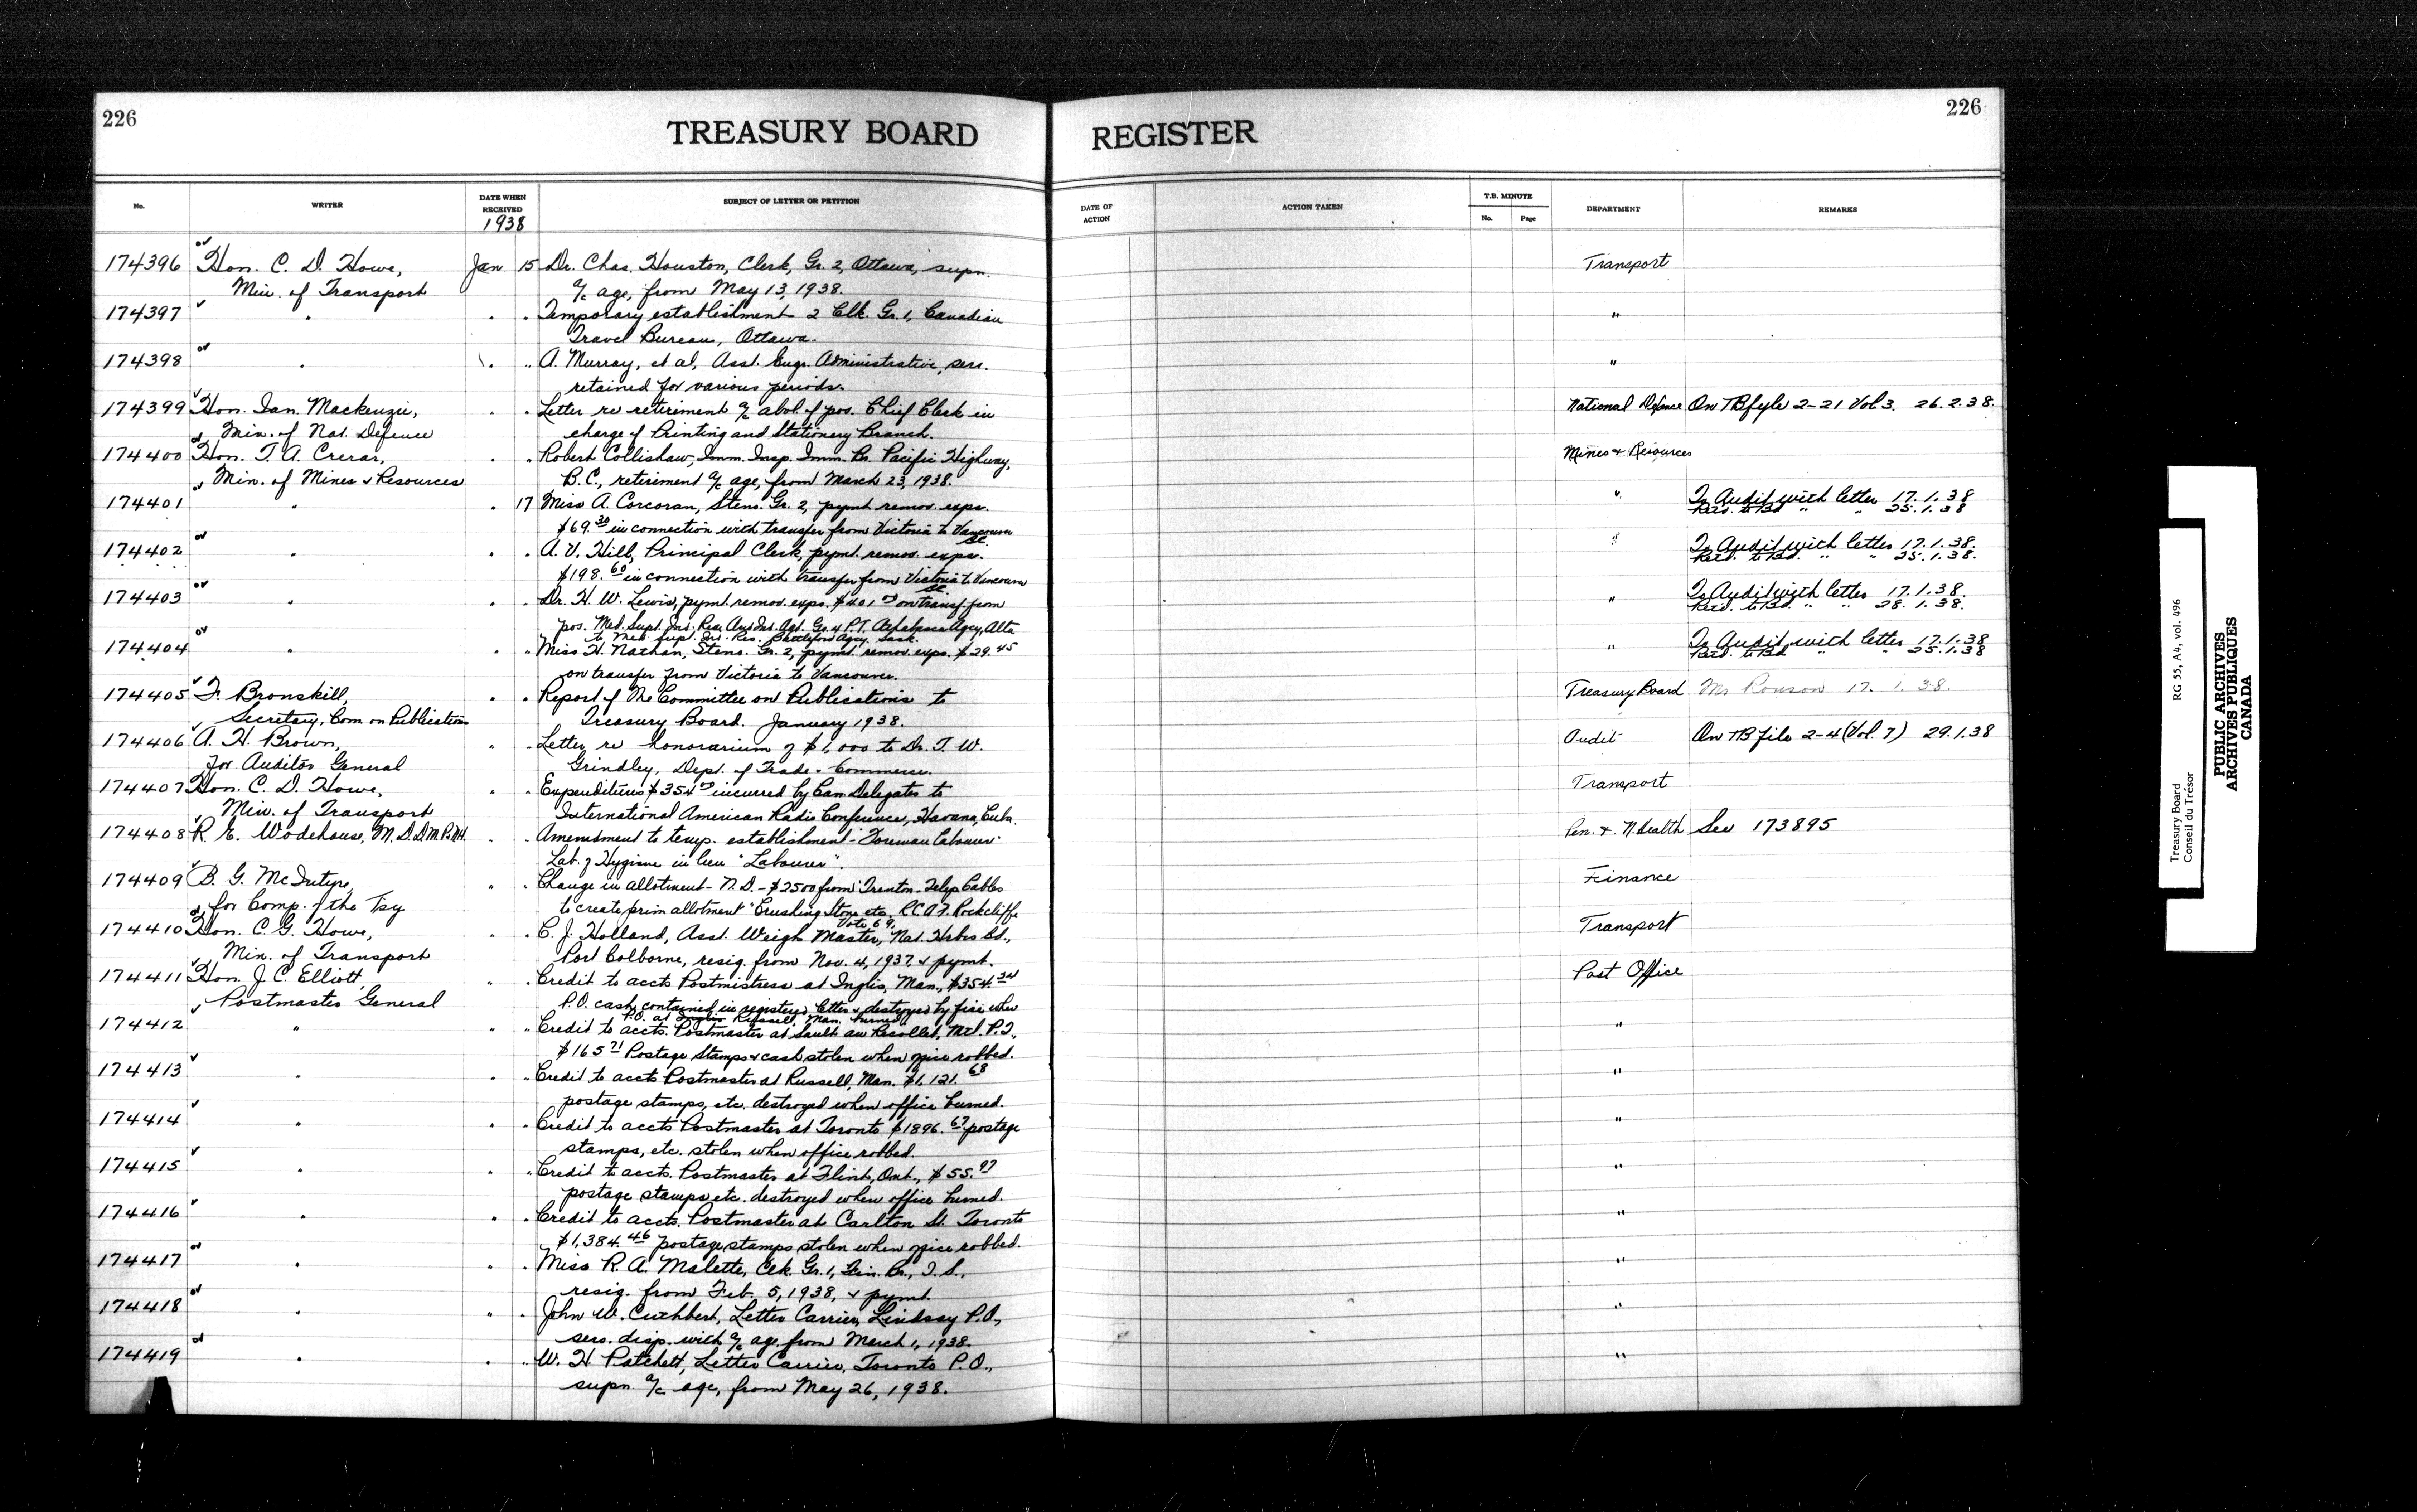 226
TREASURY BOARD
REGISTER
226
No.
WRITER
DATE WHEN RECEIVED
1938
SUBJECT OF LETTER OR PETITION
DATE OF ACTION
ACTION TAKEN
T.B. MINUTE
No. Page
DEPARTMENT
REMARKS
174396 Hon. C. D. Howe, Jan. 15 Dr. Chas. Houston, Clerk, Gr. 2, Ottawa, supn. Transport
Min. of Transport a/c age, from May 13, 1938.
174397 " " " Temporary establishment 2 Clk. Gr. 1, Canadian "
Travel Bureau, Ottawa.
174398 " " " A. Murray, et al, Asst. Engr. Administrative, sers. "
retained for various periods.
174399 Hon. Ian. Mackenzie, " " Letter re retirement a/c abol. of pos. Chief Clerk in National Defence On TB fyle 2-21 Vol 3. 26.2.38.
Min. of Nat. Defence charge of Printing and Stationery Branch.
174400 Hon. T. A. Crerar, " " Robert Collishaw, Imm. Insp. Imm. Br. Pacific Highway, Mines & Resources
Min. of Mines & Resources B.C., retirement a/c age, from March 23, 1938.
174401 " " 17 Miss A. Corcoran, Steno. Gr. 2, pymt. remov. exps. " To Audit with letter 17.1.38
$69.30 in connection with transfer from Victoria to Vancouver Recd. to Bd. " " 25.1.38
BC.
174402 " " " A. V. Hill, Principal Clerk, pymt. remov. exps. " To Audit with letter 17.1.38.
$198.60 in connection with transfer from Victoria to Vancouver Recd. to Bd. " " 25.1.38.
BC
174403 " " " Dr. H. W. Lewis, pymt. remov. exps. $401 on transf. from " To Audit with letter 17.1.38.
pos. Med. Supt. Ind. Res. And Ind. Agt. Gr. 4 P.T. Athabasca Agcy, Alta Recd. to Bd. " " 28.1.38.
to Med. Supt. Ind. Res. Battleford Agcy. Sask.
174404 " " " Miss H. Nathan, Steno. Gr. 2, pymt. remov. exps. $29.45 " To Audit with letter 17.1.38
on transfer from Victoria to Vancouver. Recd. to Bd. " " 25.1.38
174405 F. Bronskill, " " Report of The Committee on Publications to Treasury Board Mr Ronson 17. 1. 38.
Secretary, Com. on Publications Treasury Board. January 1938.
174406 A. H. Brown, " " Letter re honorarium of $1,000 to Dr. T. W. Audit On TB file 2-4 (Vol. 7) 29.1.38
for Auditor General Grindley, Dept. of Trade & Commerce.
174407 Hon. C. D. Howe, " " Expenditures $354 incurred by Can Delegates to Transport
Min. of Transport International American Radio Conference, Havana, Cuba.
174408 R. E. Wodehouse, M.D. D.M.P.&N.H. " " Amendment to temp. establishment - "Foreman Labourer" Pen. & N. Health See 173895
Lab. of Hygiene in lieu "Labourer".
174409 B. G. McIntyre, " " Change in allotment - N.D. - $2500 from Trenton - Telep Cables Finance
for Comp. of the Tsy to create prim allotment "Crushing Stone etc. RCAF. Rockcliffe
Vote 69.
174410 Hon. C. G. Howe, " " C. J. Holland, Asst. Weigh Master, Nat. Hrbrs Bd., Transport
Min. of Transport Port Colborne, resig. from Nov. 4, 1937. & pymt.
174411 Hon. J. C. Elliott, " " Credit to accts Postmistress at Inglis, Man., $354.34 Post Office
Postmaster General P.O. cash contained in registered letter & destroyed by fire when
P.O. at Russell, Man. burned
174412 " " " Credit to accts. Postmaster at Sault au Recollet, Mtl. P.Q., "
$165.71 Postage Stamps & cash stolen when office robbed.
174413 " " " Credit to accts Postmaster at Russell, Man. $1,121.68 "
postage stamps, etc. destroyed when office burned.
174414 " " " Credit to accts Postmaster at Toronto $1896.67 postage "
stamps, etc. stolen when office robbed.
174415 " " " Credit to accts. Postmaster at Flint, Ont., $55.97 "
postage stamps, etc. destroyed when office burned.
174416 " " " Credit to accts. Postmaster at Carlton St. Toronto "
$1,384.46 postage stamps stolen when office robbed.
174417 " " " Miss R. A. Malette, Clk. Gr. 1, Fin. Br., I.S., "
resig. from Feb. 5, 1938, & pymt.
174418 " " " John W. Cuthbert, Letter Carrier, Lindsay P.O., "
sers. disp. with a/c age from March 1, 1938.
174419 " " " W. H Patchett, Letter Carrier, Toronto P.O., "
supn. a/c age, from May 26, 1938.
Treasury Board RG 55, A4, vol. 496
Conseil du Trésor
PUBLIC ARCHIVES
ARCHIVES PUBLIQUES
CANADA